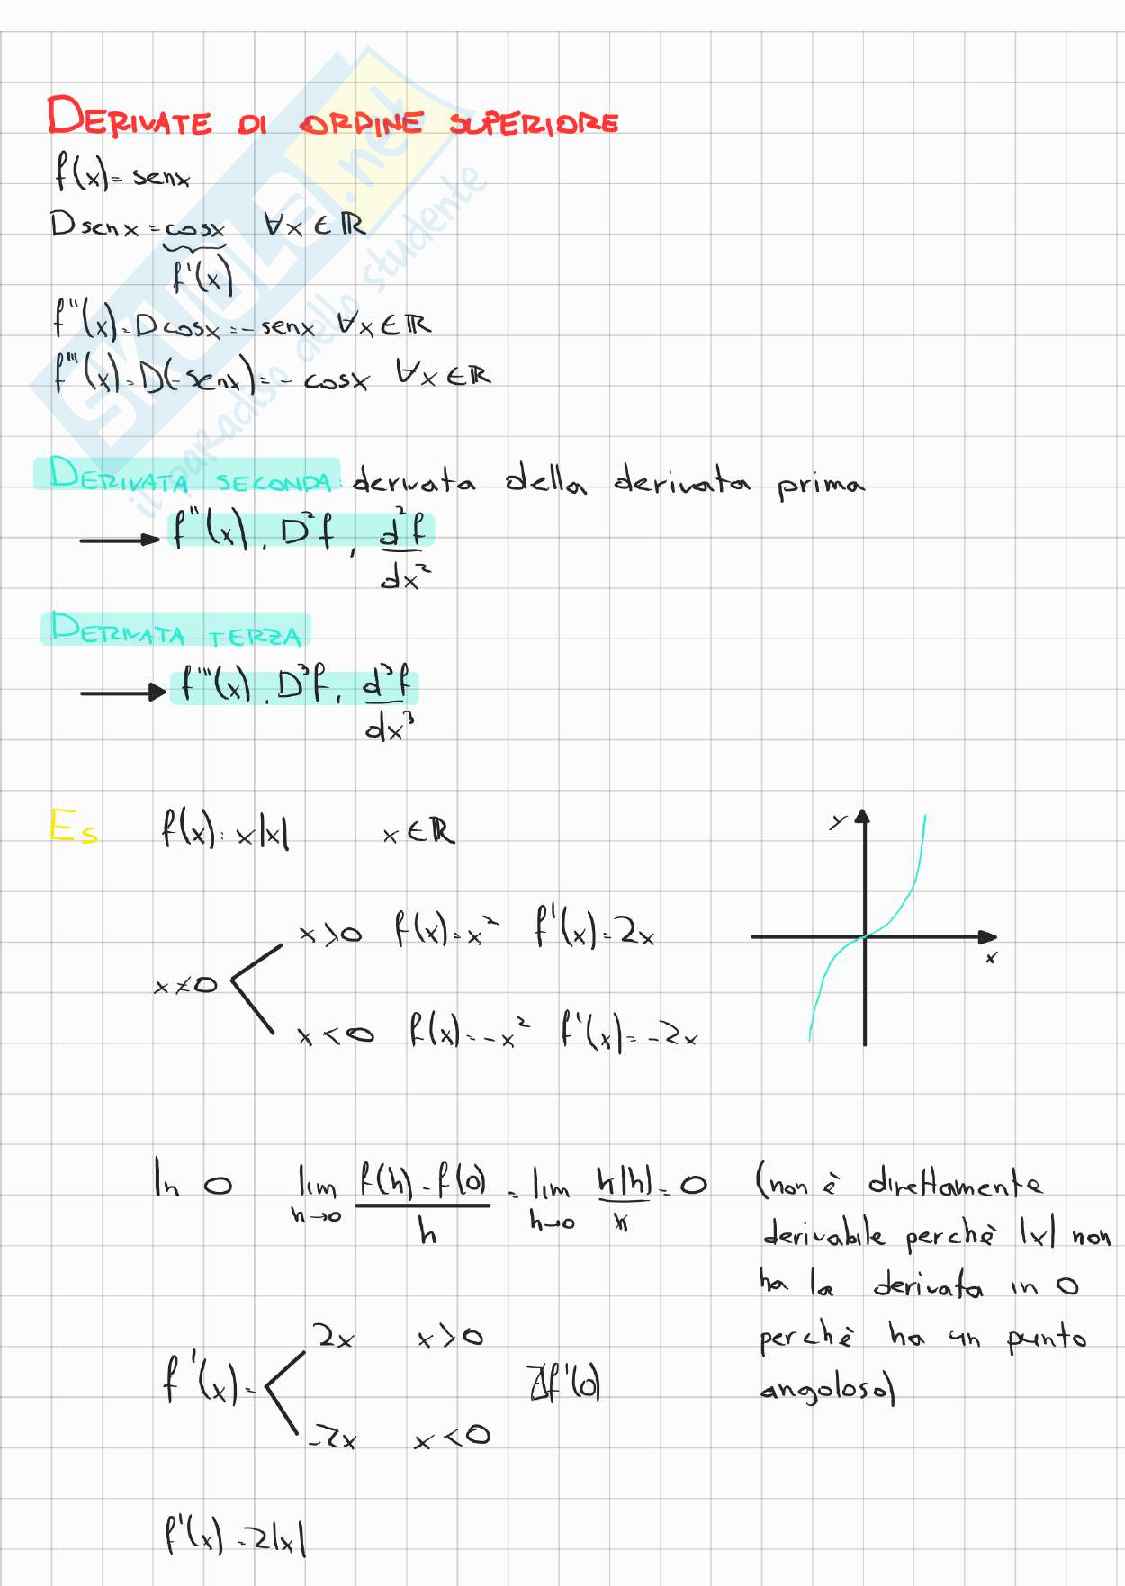 DERIVATE DI ORDINE SUPERIORE
f(x) = senx
D senx = cosx ∀x ∈ ℝ
f'(x)
f''(x) = D cosx = -senx ∀x ∈ ℝ
f'''(x) = D(-senx) = -cosx ∀x ∈ ℝ
DERIVATA SECONDA: derivata della derivata prima
→ f''(x), D²f, d²f/dx²
DERIVATA TERZA
→ f'''(x), D³f, d³f/dx³
Es f(x) = x|x| x ∈ ℝ
y
x
x>0 f(x) = x² f'(x) = 2x
x≠0
x<0 f(x) = -x² f'(x) = -2x
In 0 lim h→0 (f(h) - f(0))/h = lim h→0 h|h|/h = 0 (non è direttamente
derivabile perchè |x| non
ha la derivata in 0
perchè ha un punto
angoloso)
2x x>0
f'(x) = ∄f'(0)
-2x x<0
f'(x) = 2|x|
SKUOLA.net
il paradiso dello studente